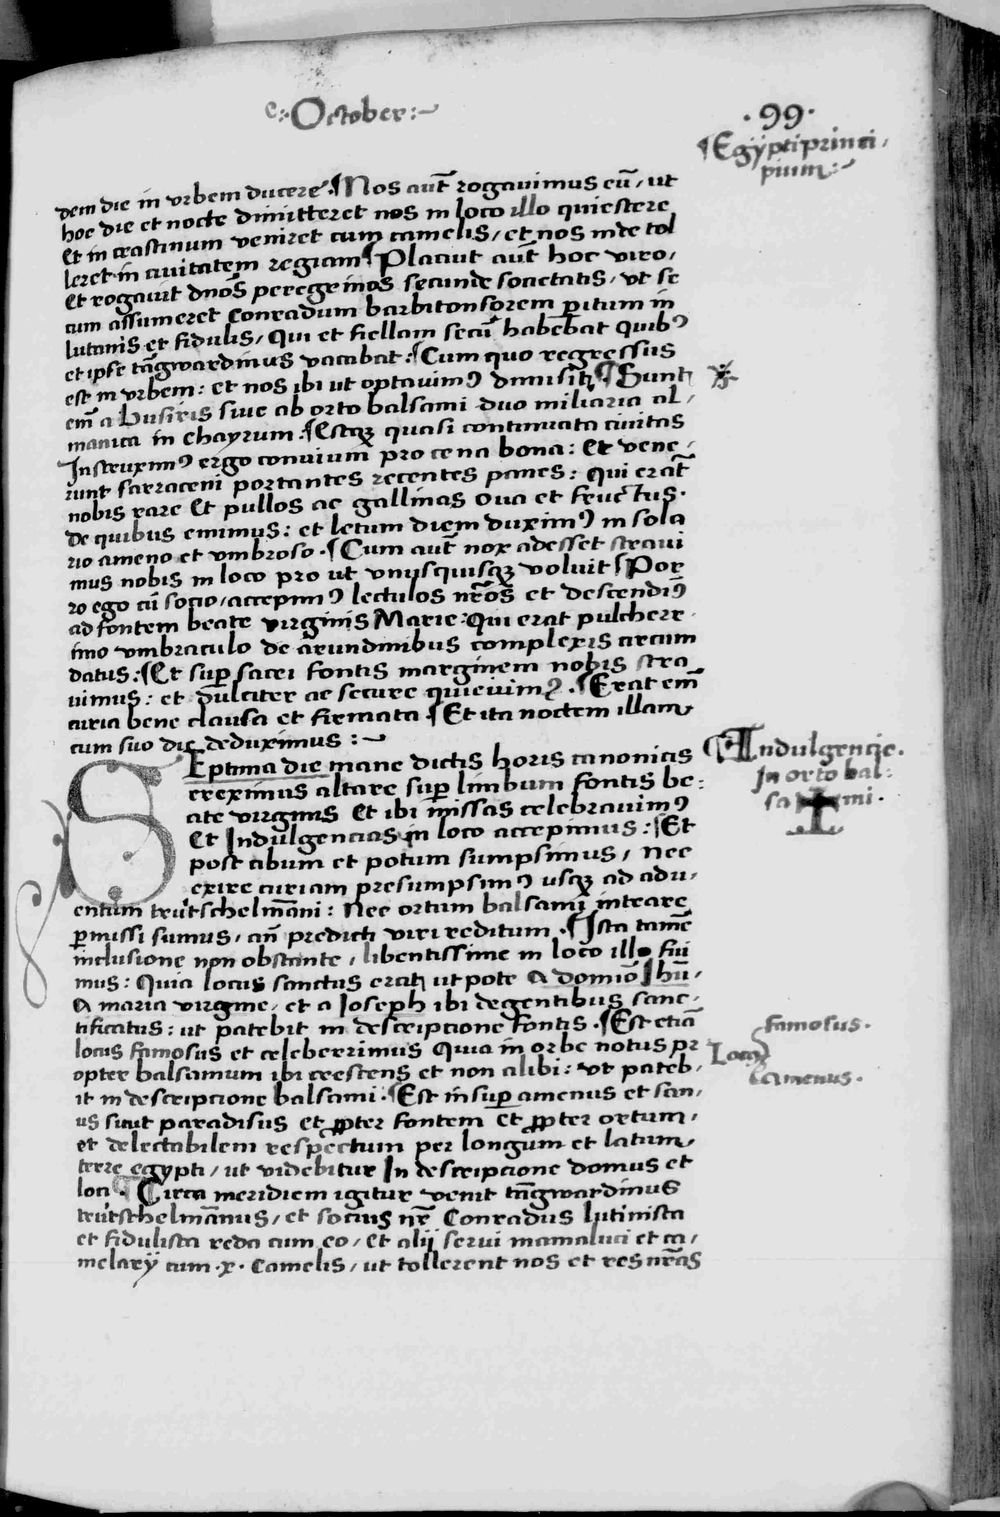 e:·October:~
·99·
¶Egÿptiprinci,
pium:~
dem die in vrbem ducere ¶Nos aut̄ rogauimus eū, ut
hoc die et nocte dimitteret nos in loco illo quiescere
Et in crastinum veniret cum camelis, et nos inde tol
leret in ciuitatem regiam ¶Placuit aut̄ hoc viro,
Et rogauit dnōs peregrinos secunde societatis, vt se
cum assumeret Conradum barbitonsorem ꝑitum in
lutanis et fidulis, Qui et fiellam secū habebat quibꝰ
et ipse tāgwardinus vacabat: ¶Cum quo regressus
est in vrbem: et nos ibi ut optauimꝰ dimisit ¶Sunt
em̄ a Busiris siue ab orto balsami duo miliaria al,
manica in Chayrum. ¶Estqꝫ quasi continuata ciuitas
Instruximꝰ ergo conuiuium pro cena bona: Et vene,
runt sarraceni portantes recentes panes: Qui erāt
nobis rare Et pullos ac gallinas Oua et fructus.
De quibus emimus: et letum diem duximꝰ in sola
rio ameno et vmbroso. ¶Cum aut̄ nox adesset straui
mus nobis in loco pro ut vnusquisqꝫ voluit ¶Por
ro ego cū socio, accepimꝰ lectulos nr̄os et descendimꝰ
ad fontem beate virginis Marie: Qui erat pulcherr
imo vmbraculo de arundinibus complexis circum
datus: ¶Et suꝑ sacri fontis marginem nobis stra
uimus: et dulciter ac secure quieuimꝰ. ¶Erat em̄
curia bene clausa et firmata ¶Et ita noctem illam
cum suo die deduximus:~
SEptima die mane dictis horis canonicis
ereximus altare suꝑ limbum fontis be:
ate virginis Et ibi missas celebrauimꝰ
Et Indulgencias in loco accepimus: ¶Et
post cibum et potum sumpsimus, Nec
exire curiam presumpsimꝰ usqꝫ ad adu,
entum trutschelmāni: Nec ortum balsami intrare
ꝑmissi sumus, an̄ predicti viri reditum. ¶Ista tamē
inclusione non obstante, libentissime in loco illo fui
mus: Quia locus sanctus erat ut pote A domiō Jhū,
A maria virgine, et a Joseph ibi degentibus sanc,
tificatus: ut patebit in descripcione fontis. ¶Est etiā
locus famosus et celeberrimus Quia in orbe notus pr
opter balsamum ibi crescens et non alibi: vt pateb,
it in descripcione balsami. ¶Est insuꝑ amenus et san,
us sicut paradisus et ꝓpter fontem Et ꝓpter ortum,
et delectabilem respectum per longum et latum,
terre egypti, ut videbitur In descripcione domus et
loci. ¶Circa meridiem igitur venit tāgwardinus
trutschelmānus, et socius nr̄ Conradus lutinista
et fidulista reda cum eo, Et alij serui mamaluci et ca,
melarÿ cum ·x· Camelis, ut tollerent nos et res nr̄as
¶Indulgencie.
In orto bal:
sa mi.
famosus.
Locꝰ
amenus.